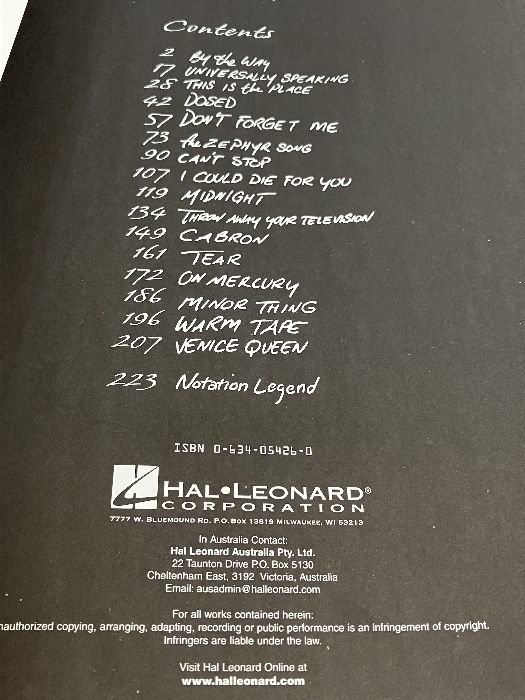 Contents
2 By the Way
17 UNIVERSALLY SPEAKING
28 THIS IS the PLACE
42 DOSED
57 DON'T FORGET ME
73 the ZEPHYR SONG
90 CAN'T STOP
107 I COULD DIE FOR YOU
119 MIDNIGHT
134 THROW AWAY YOUR TELEVISION
149 CABRON
161 TEAR
172 ON MERCURY
186 MINOR THING
196 WARM TAPE
207 VENICE QUEEN
223 Notation Legend
ISBN 0-634-05426-0
HAL•LEONARD®
CORPORATION
7777 W. BLUEMOUND RD. P.O. BOX 13819 MILWAUKEE, WI 53213
In Australia Contact:
Hal Leonard Australia Pty. Ltd.
22 Taunton Drive P.O. Box 5130
Cheltenham East, 3192 Victoria, Australia
Email: ausadmin@halleonard.com
For all works contained herein:
nauthorized copying, arranging, adapting, recording or public performance is an infringement of copyright.
Infringers are liable under the law.
Visit Hal Leonard Online at
www.halleonard.com